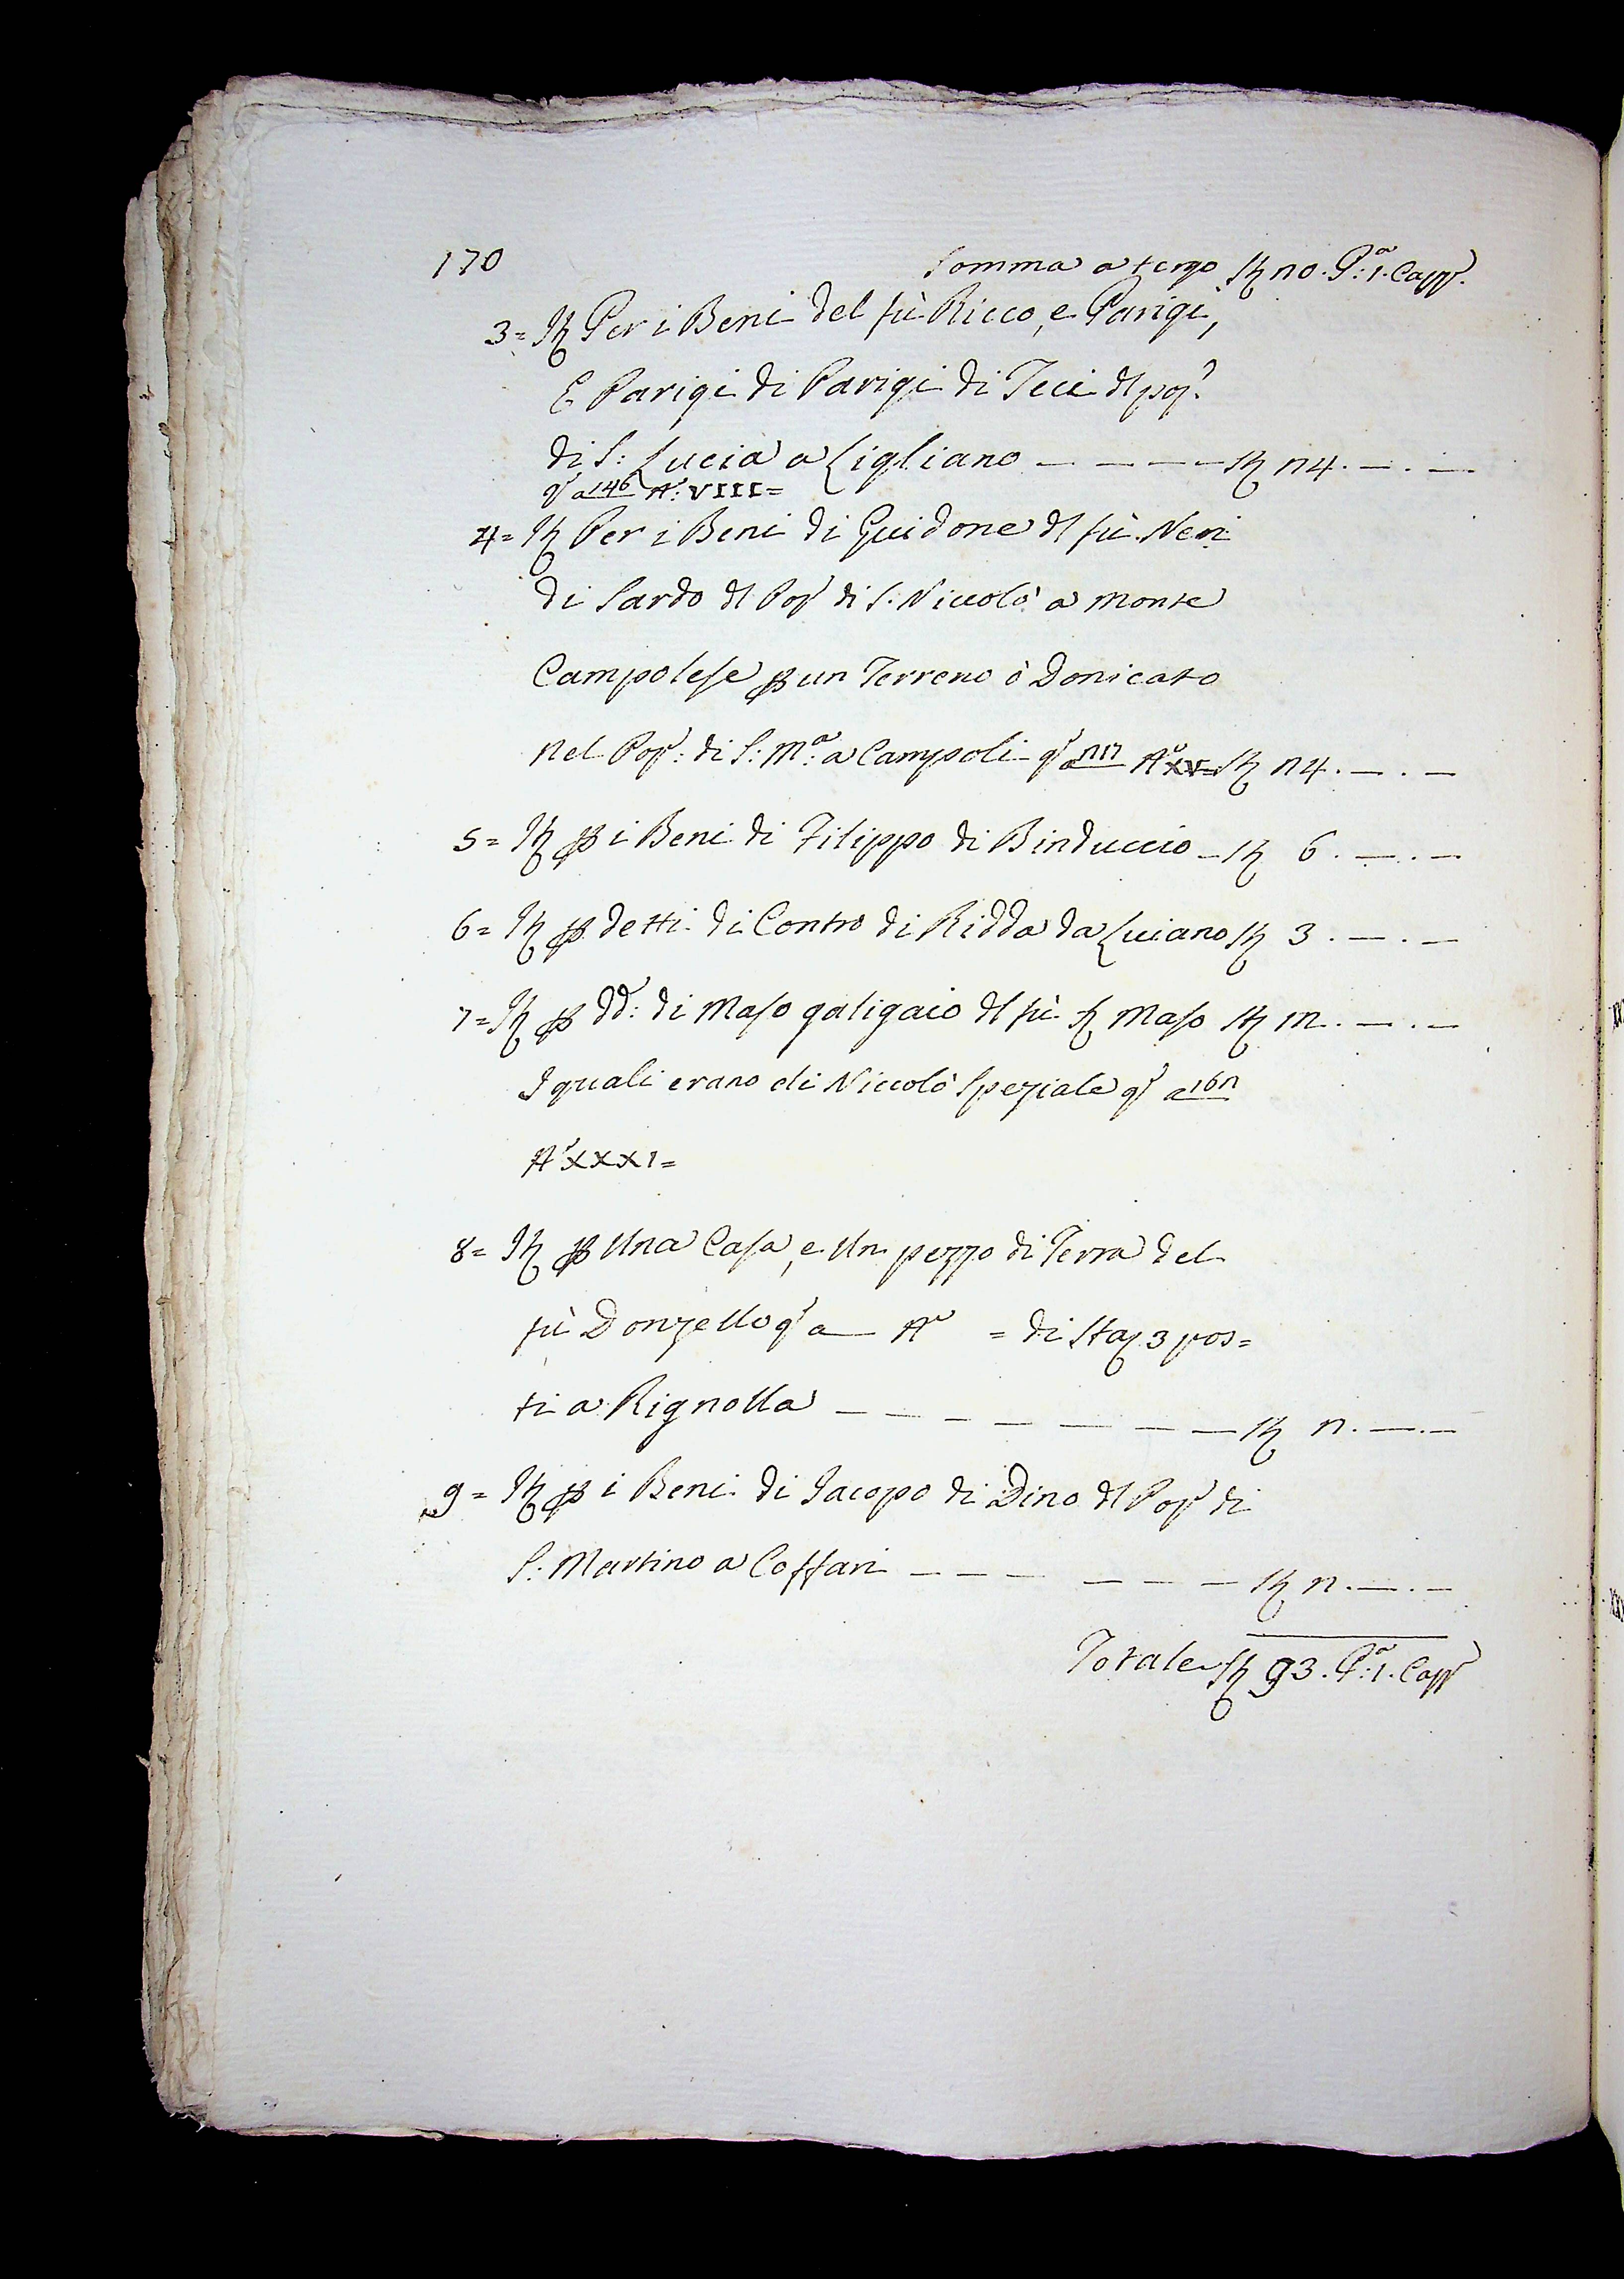 170 Somma a tergo St 20. P.a: 1. Capp.
3= It Per i Beni del fù Ricco, e Parigi,
E Parigi di Parigi di Teci dl pop.
di S: Lucia a Ligliano — — — — St 24. — . —
q.a 146 A.o: VIII=
4= It Per i Beni di Guidone dl fù Neri
di Sardo dl Pop di S. Niccolò a Monte
Campolese p un Terreno ò Donicato
Nel Pop: di S: M.a: a Campoli q a 212 A.o XV= St 24. — . —
5= It p i Beni di Filippo di Binduccio — St 6. — . —
6= It p detti di Contro di Ridda da Luciano St 3. — . —
7= It p dd: di Maso galigaio dl fù S Maso St 12. — . —
I quali erano di Niccolò Speziale q a 162
A.o XXXI=
8= It p Una Casa, e Un pezzo di Terra del
fù Donzello q a — A.o = di Sta 3 pos=
ti a Rignolla — — — — — — — St 2. — . —
9= It p i Beni di Jacopo di Dino dl Pop di
S: Martino a Coffari — — — — — — St 2. — . —
Totale St 93. P.a: 1. Capp